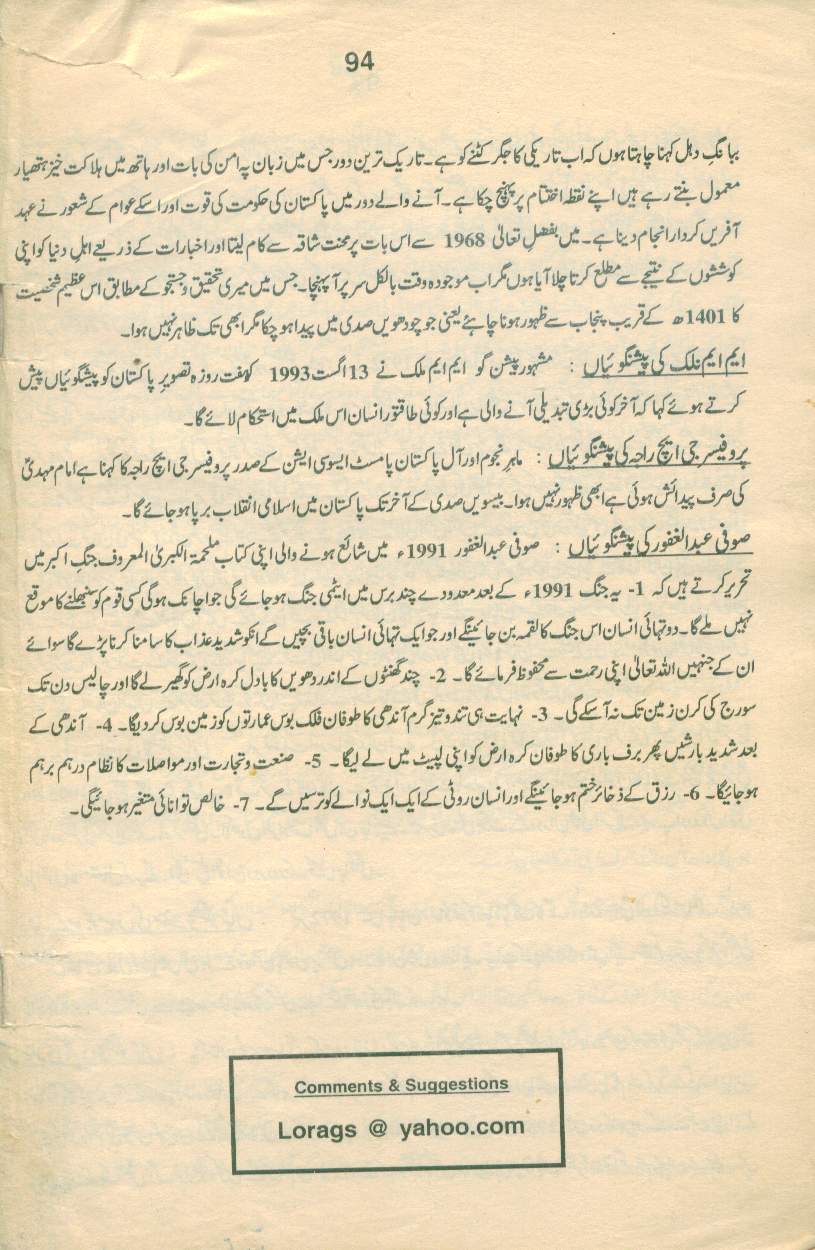 94
ببانگِ دہل کہنا چاہتا ہوں کہ اب تاریکی کا جگر کٹنے کو ہے۔ تاریک ترین دور جس میں زبان پہ امن کی بات اور ہاتھ میں ہلاکت خیز ہتھیار
معمول بنتے رہے ہیں اپنے نقطہ اختتام پر پہنچ چکا ہے۔ آنے والے دور میں پاکستان کی حکومت کی قوت اور اسکے عوام کے شعور نے عہد
آفریں کردار انجام دینا ہے۔ میں بفضلِ تعالیٰ 1968 سے اس بات پر محنت شاقہ سے کام لیتا اور اخبارات کے ذریعے اہلِ دنیا کو اپنی
کوششوں کے نتیجے سے مطلع کرتا چلا آیا ہوں مگر اب موجودہ وقت بالکل سر پر آ پہنچا۔ جس میں میری تحقیق و جستجو کے مطابق اس عظیم شخصیت
کا 1401ھ کے قریب پنجاب سے ظہور ہونا چاہئے یعنی جو چودھویں صدی میں پیدا ہو چکا مگر ابھی تک ظاہر نہیں ہوا۔
ایم ایم ملک کی پیشنگوئیاں : مشہور پیشن گو ایم ایم ملک نے 13 اگست 1993 کو ہفت روزہ تصویرِ پاکستان کو پیشگوئیاں پیش
کرتے ہوئے کہا کہ آخر کوئی بڑی تبدیلی آنے والی ہے اور کوئی طاقتور انسان اس ملک میں استحکام لائے گا۔
پروفیسر جی ایچ راجہ کی پیشنگوئیاں : ماہرِ نجوم اور آل پاکستان پامسٹ ایسوسی ایشن کے صدر پروفیسر جی ایچ راجہ کا کہنا ہے امام مہدیؑ
کی صرف پیدائش ہوئی ہے ابھی ظہور نہیں ہوا۔ بیسویں صدی کے آخر تک پاکستان میں اسلامی انقلاب برپا ہو جائے گا۔
صوفی عبدالغفور کی پیشنگوئیاں : صوفی عبدالغفور 1991ء میں شائع ہونے والی اپنی کتاب ملحمۃ الکبریٰ المعروف جنگِ اکبر میں
تحریر کرتے ہیں کہ 1- یہ جنگ 1991ء کے بعد معدودے چند برس میں ایٹمی جنگ ہو جائے گی جو اچانک ہوگی کسی قوم کو سنبھلنے کا موقع
نہیں ملے گا۔ دو تہائی انسان اس جنگ کا لقمہ بن جائینگے اور جو ایک تہائی انسان باقی بچیں گے انکو شدید عذاب کا سامنا کرنا پڑے گا سوائے
ان کے جنہیں اللہ تعالیٰ اپنی رحمت سے محفوظ فرمائے گا۔ 2- چند گھنٹوں کے اندر دھویں کا بادل کرہ ارض کو گھیر لے گا اور چالیس دن تک
سورج کی کرن زمین تک نہ آ سکے گی۔ 3- نہایت ہی تند و تیز گرم آندھی کا طوفان فلک بوس عمارتوں کو زمین بوس کر دیگا۔ 4- آندھی کے
بعد شدید بارشیں پھر برف باری کا طوفان کرہ ارض کو اپنی لپیٹ میں لے لیگا۔ 5- صنعت و تجارت اور مواصلات کا نظام درہم برہم
ہو جائیگا۔ 6- رزق کے ذخائر ختم ہو جائینگے اور انسان روٹی کے ایک ایک نوالے کو ترسیں گے۔ 7- خالص توانائی متغیر ہو جائیگی۔
Comments & Suggestions
Lorags @ yahoo.com